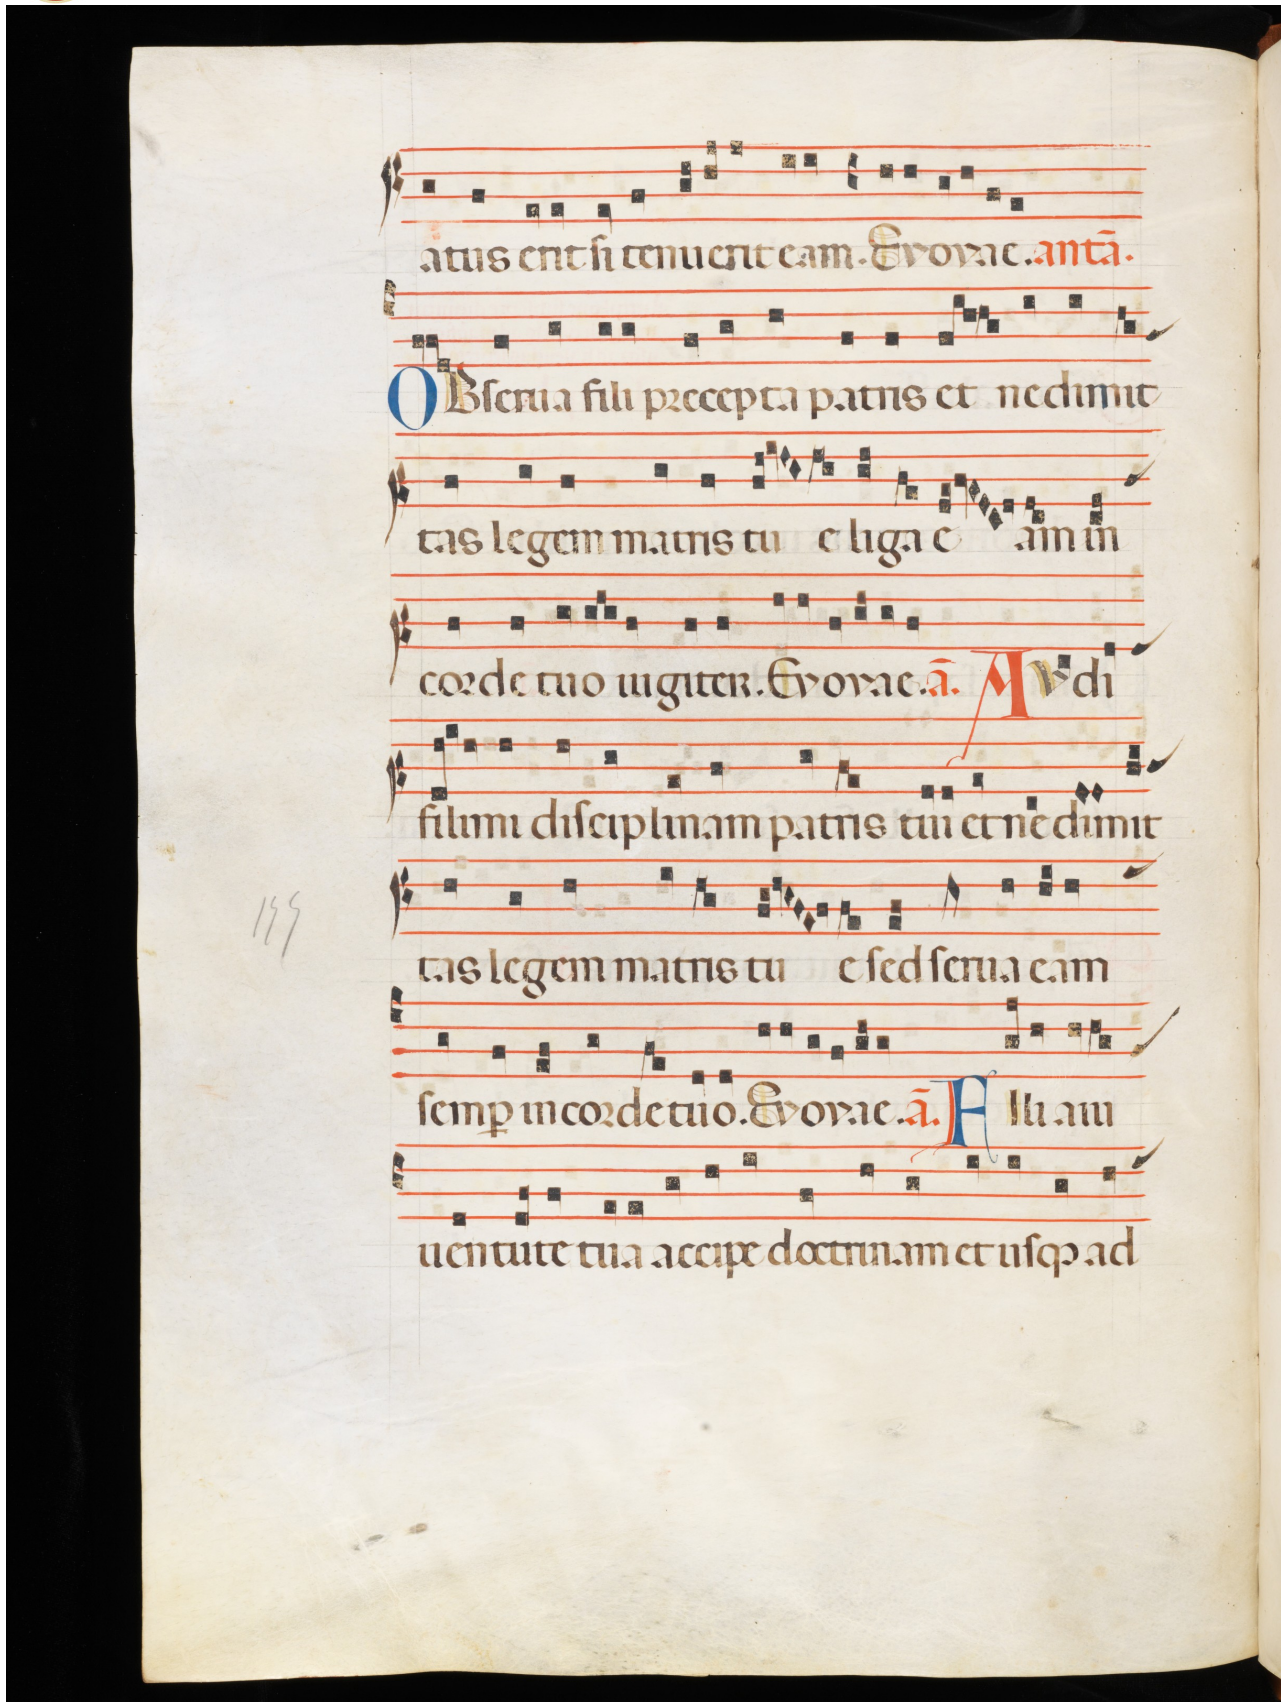 atus erit si tenuerit eam. Evovae. antā.
OBserua fili precepta patris et ne dimit
tas legem matris tu e liga e am in
corde tuo iugiter. Evovae. ā. AVdi
fili mi disciplinam patris tui et ne dimit
tas legem matris tu e sed serua eam
semꝑ in corde tuo. Evovae. ā. FIli a iu
uentute tua accipe doctrinam et usqꝫ ad